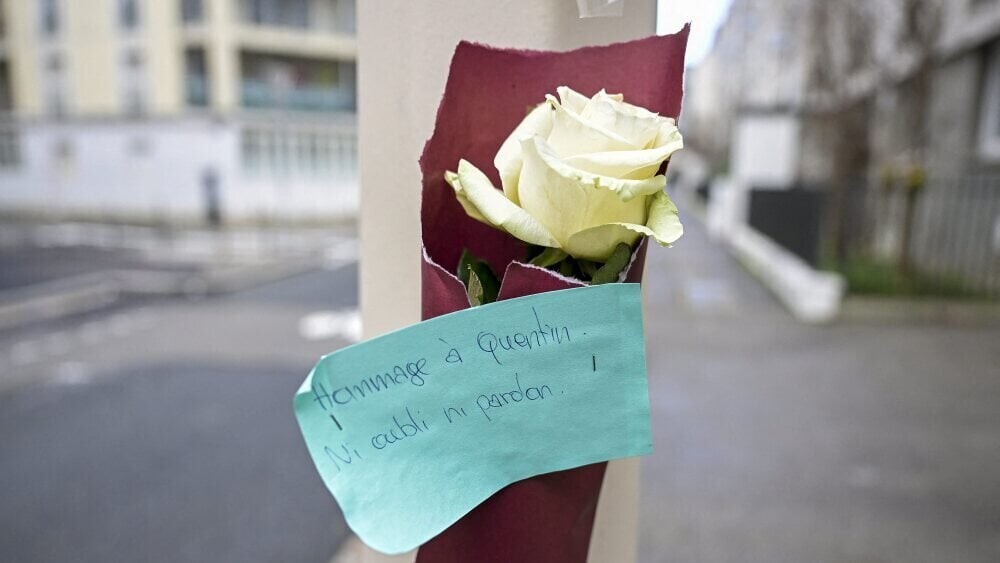 Hommage à Quentin.
Ni oubli ni pardon.